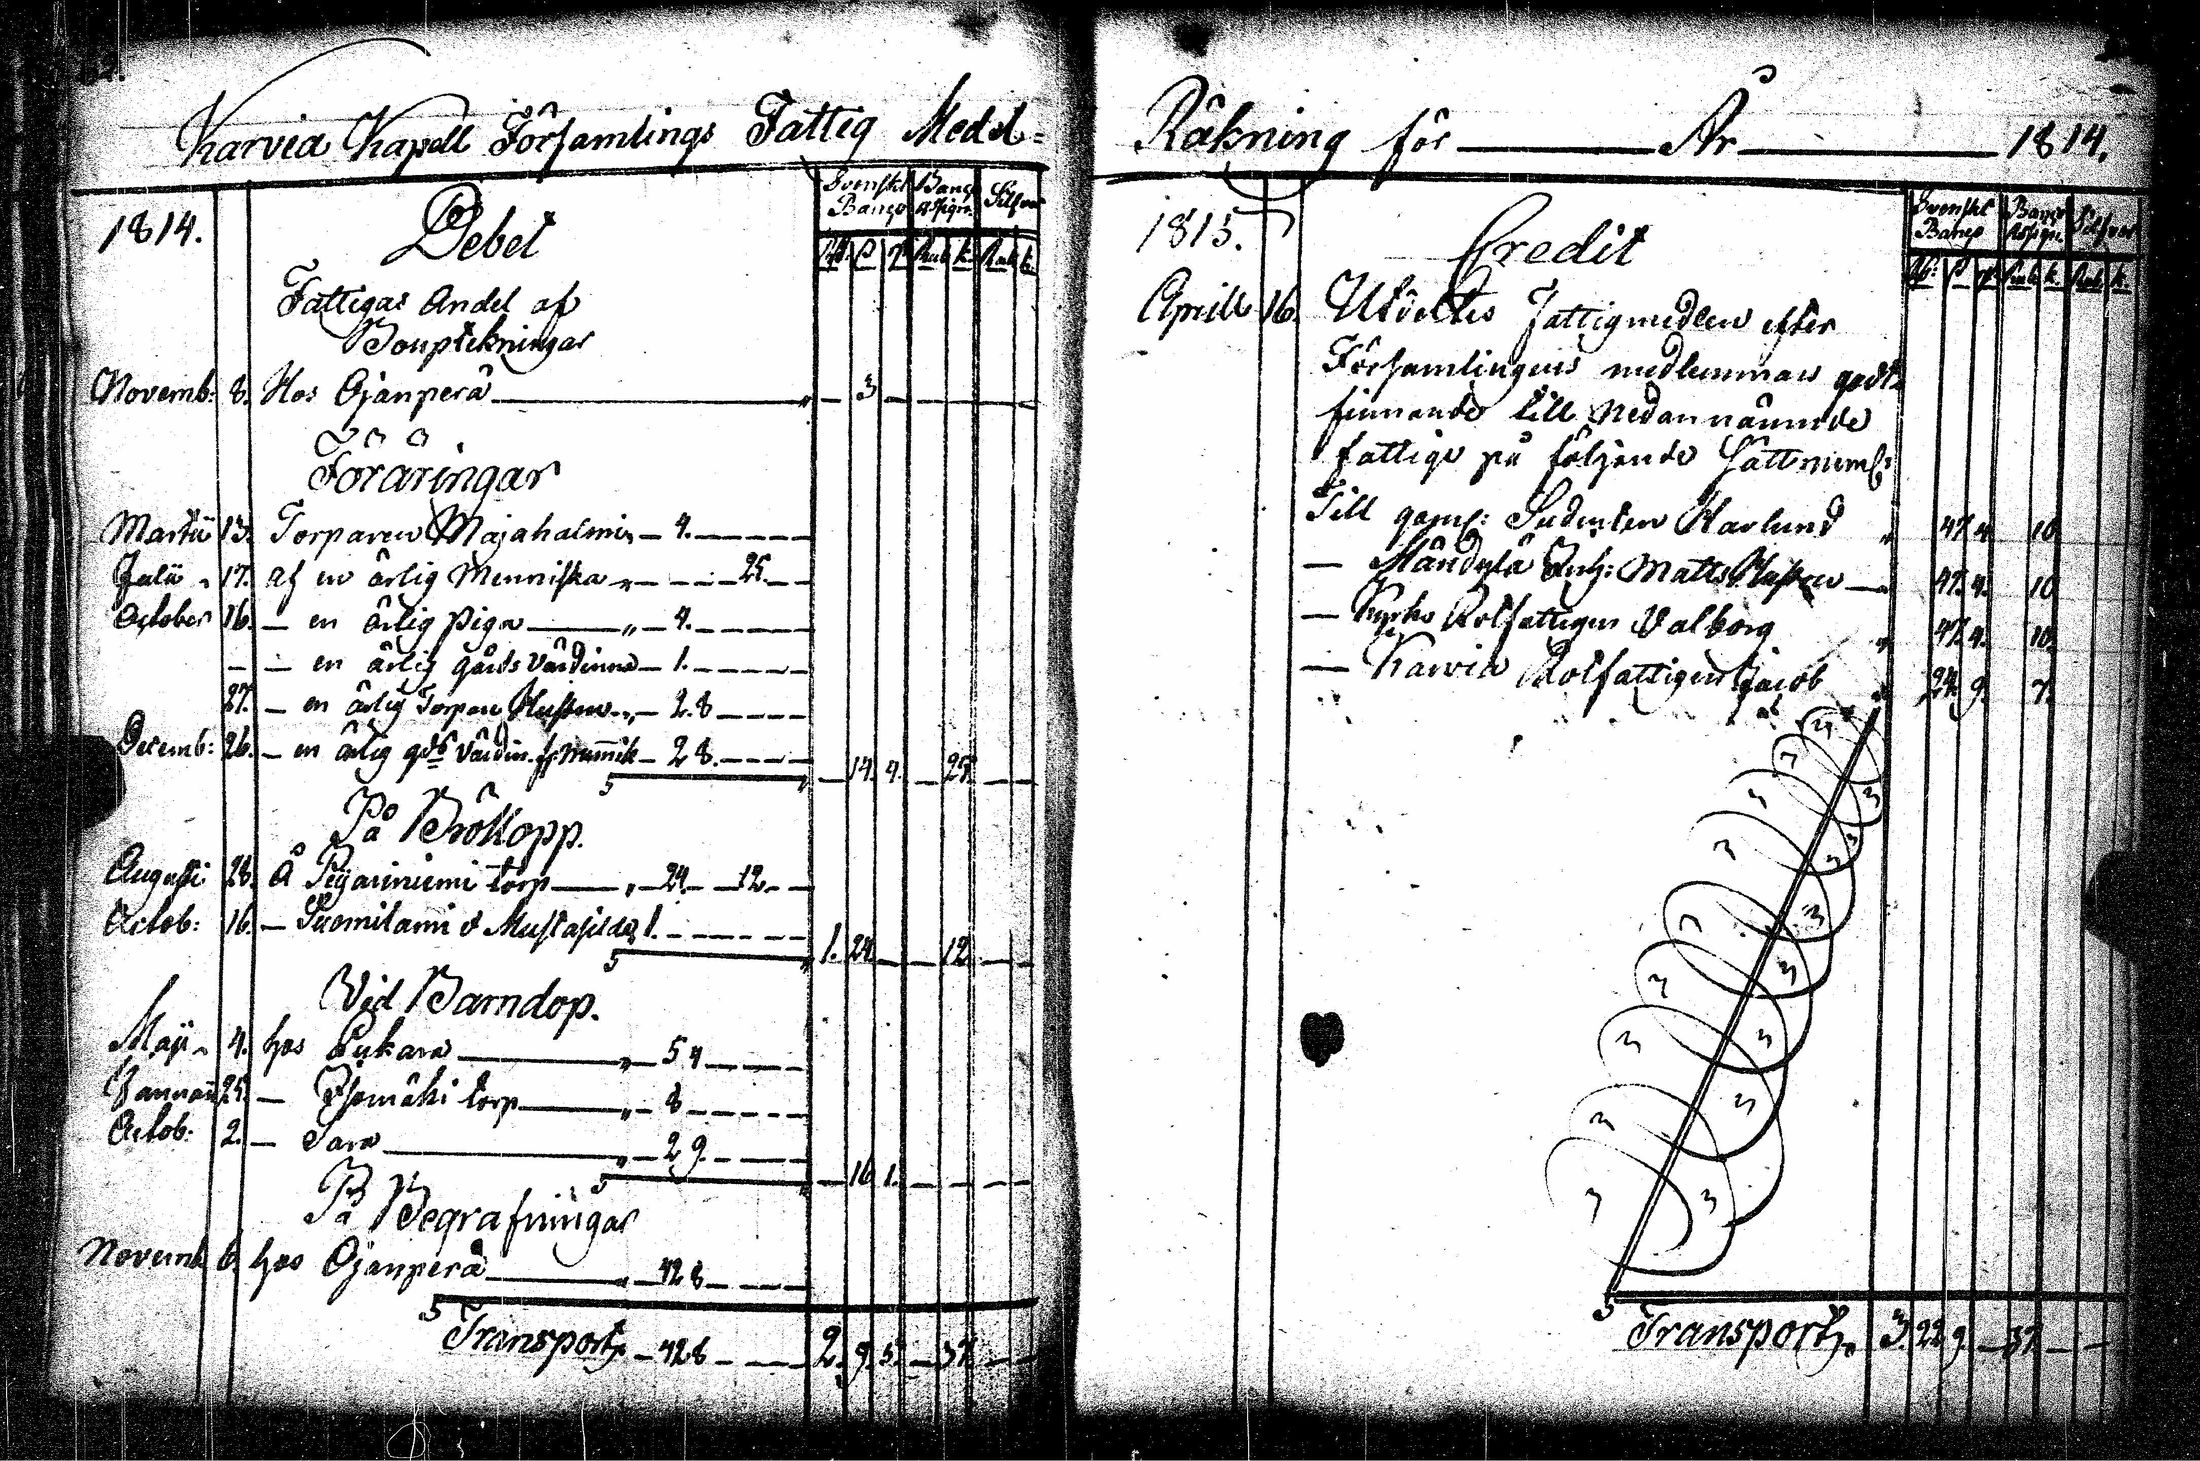 Karvia Kapell Församlings Fattig Medel=
1814.
Debet
Svenskt Banco
Banco Assign.
Silfver
Rd. ß r. Rub. k. Rub. k.
Fattigas Andel af
Bouptekningar
Novemb: 8. Hos Ojanperä — 3 —
Föräringar
Martii 13. Torparen Majahalmi „ — 4. —
Julii „ 17. Af en ärlig Menniska „ — — — 25. —
October 16. — en ärlig Piga — „ — 4. —
— — en ärlig gårds värdinna — 1. —
27. — en ärlig Torpare Hustru „ — 2. 8 —
Decemb: 26. — en ärlig gds värdin. — 2 8. —
— 14. 4. — 25. —
På Bröllopp.
Augusti 28. Å Peijariniemi torp — „ — 24. — 12. —
Octob: 16. — Suomilami 1. —
1. 24. — 12. —
Vid Barndop.
Maji „ 4. hos Lukara — „ — 5 4 —
Januarii 25. — Isomäki torp — „ — 8 —
Octob: 2. — Sara — „ — 2 9. —
— 16. 1. —
På Begrafningar
Novemb. 6. hos Ojanperä — „ — 42 8 —
Transport — 42 8 — 2. 9. 5. — 37. —
Räkning för — År — 1814.
1815.
Credit
Svenskt Banco
Banco Assign.
Silfver
Rd: ß r. Rub. k. Rub. k.
Aprill 16. Utdeltes Fattigmedlen efter
Församlingens medlemmars godt=
finnande till Nedannämnde
fattige på följande sätt neml:
Till gaml: Harlund „ 47. 4. 10.
— Mändylä Inh: Matts „ 47. 4. 10
— Kyrko Rotfattigen Valborg „ 47. 4. 10.
— Karvia Rotfattigen Jacob „ 24. 9. 7.
Transport 3. 22 9. — 37. —